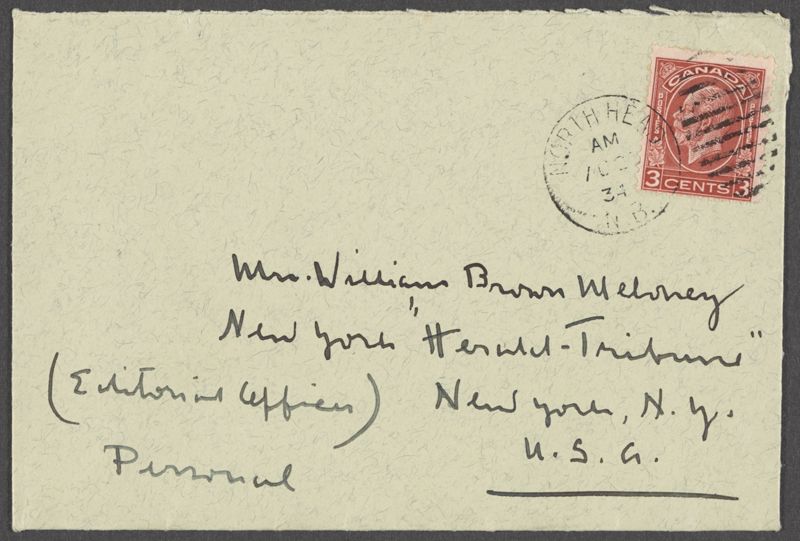 CANADA
POSTES
3 CENTS 3
NORTH HEAD
AM
34
N.B.
Mrs. William Brown Meloney
New York "Herald-Tribune"
(Editorial Offices)
New York, N.Y.
U.S.A.
Personal